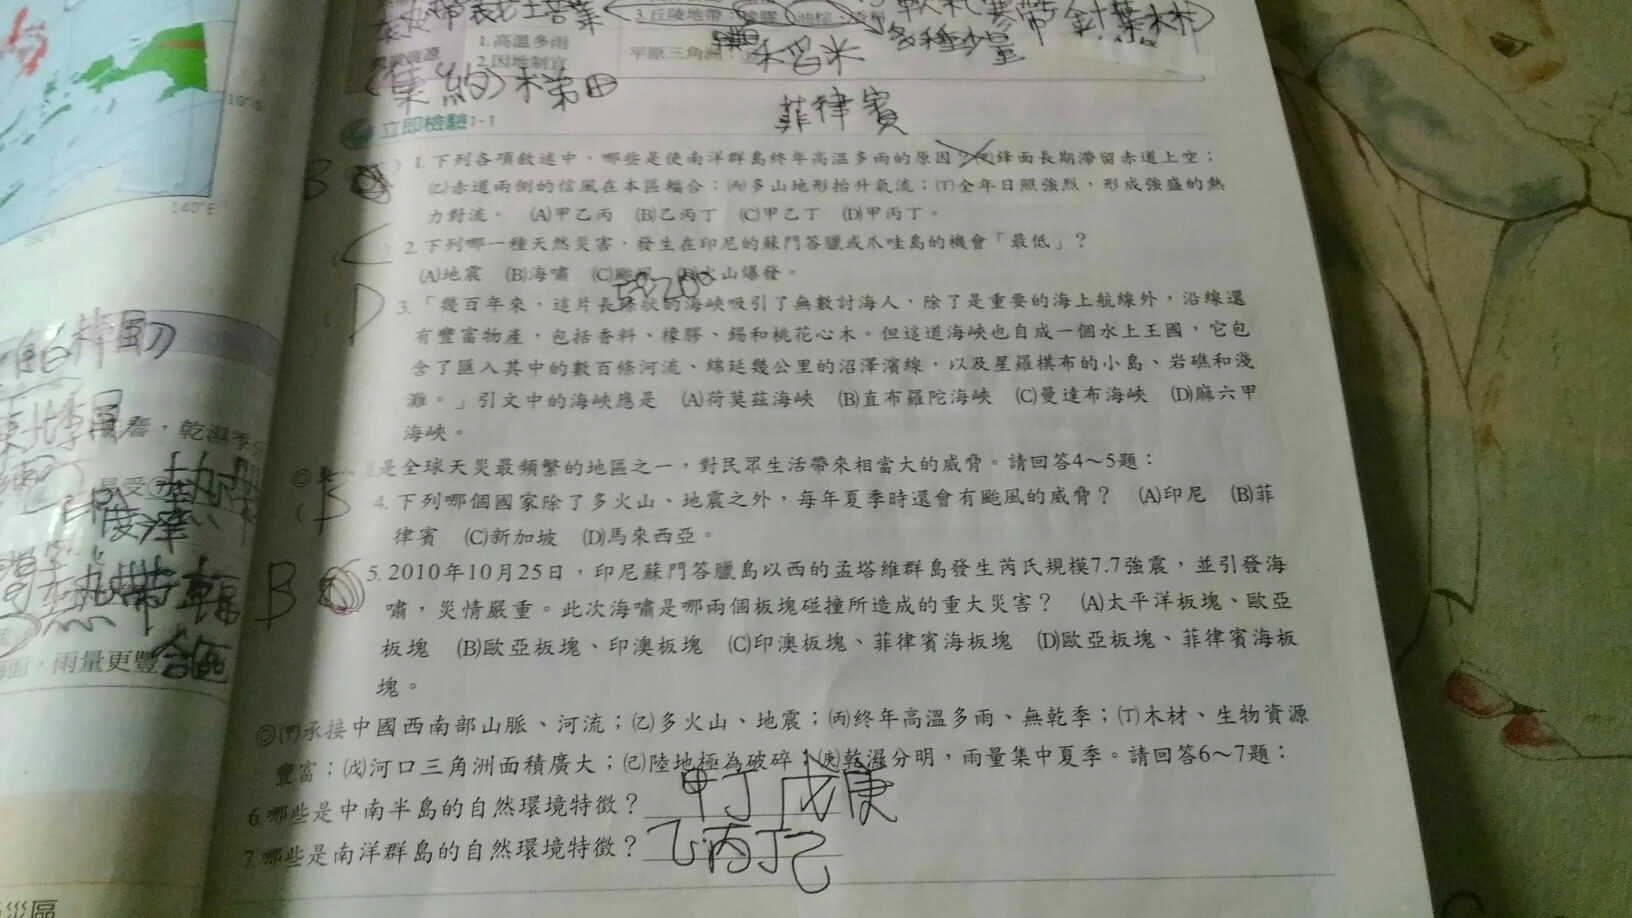 3.丘陵地帶：橡膠、油棕、
軟木(寒帶針葉林)
各種少量
1.高溫多雨
2.因地制宜
平原三角洲：
禾習米
(集約)梯田
菲律賓
立即檢驗1-1
B 1.下列各項敘述中，哪些是使南洋群島終年高溫多雨的原因？(甲)鋒面長期滯留赤道上空；
(乙)赤道兩側的信風在本區輻合；(丙)多山地形抬升氣流；(丁)全年日照強烈，形成強盛的熱
力對流。 (A)甲乙丙 (B)乙丙丁 (C)甲乙丁 (D)甲丙丁。
C 2.下列哪一種天然災害，發生在印尼的蘇門答臘或爪哇島的機會「最低」？
(A)地震 (B)海嘯 (C)颱風 (D)火山爆發。
5°~20°
D 3.「幾百年來，這片長條狀的海峽吸引了無數討海人，除了是重要的海上航線外，沿線還
有豐富物產，包括香料、橡膠、錫和桃花心木。但這道海峽也自成一個水上王國，它包
含了匯入其中的數百條河流、綿延幾公里的沼澤濱線，以及星羅棋布的小島、岩礁和淺
灘。」引文中的海峽應是 (A)荷莫茲海峽 (B)直布羅陀海峽 (C)曼達布海峽 (D)麻六甲
海峽。
是全球天災最頻繁的地區之一，對民眾生活帶來相當大的威脅。請回答4～5題：
B 4.下列哪個國家除了多火山、地震之外，每年夏季時還會有颱風的威脅？ (A)印尼 (B)菲
律賓 (C)新加坡 (D)馬來西亞。
B 5.2010年10月25日，印尼蘇門答臘島以西的孟塔維群島發生芮氏規模7.7強震，並引發海
嘯，災情嚴重。此次海嘯是哪兩個板塊碰撞所造成的重大災害？ (A)太平洋板塊、歐亞
板塊 (B)歐亞板塊、印澳板塊 (C)印澳板塊、菲律賓海板塊 (D)歐亞板塊、菲律賓海板
塊。
◎(甲)承接中國西南部山脈、河流；(乙)多火山、地震；(丙)終年高溫多雨、無乾季；(丁)木材、生物資源
豐富；(戊)河口三角洲面積廣大；(己)陸地極為破碎；(庚)乾濕分明，雨量集中夏季。請回答6～7題：
6.哪些是中南半島的自然環境特徵？甲丁戊庚
7.哪些是南洋群島的自然環境特徵？乙丙丁己
10°S
140°E
東北季風
，乾濕季分
最受
熱帶輻
合區
，雨量更豐
災區